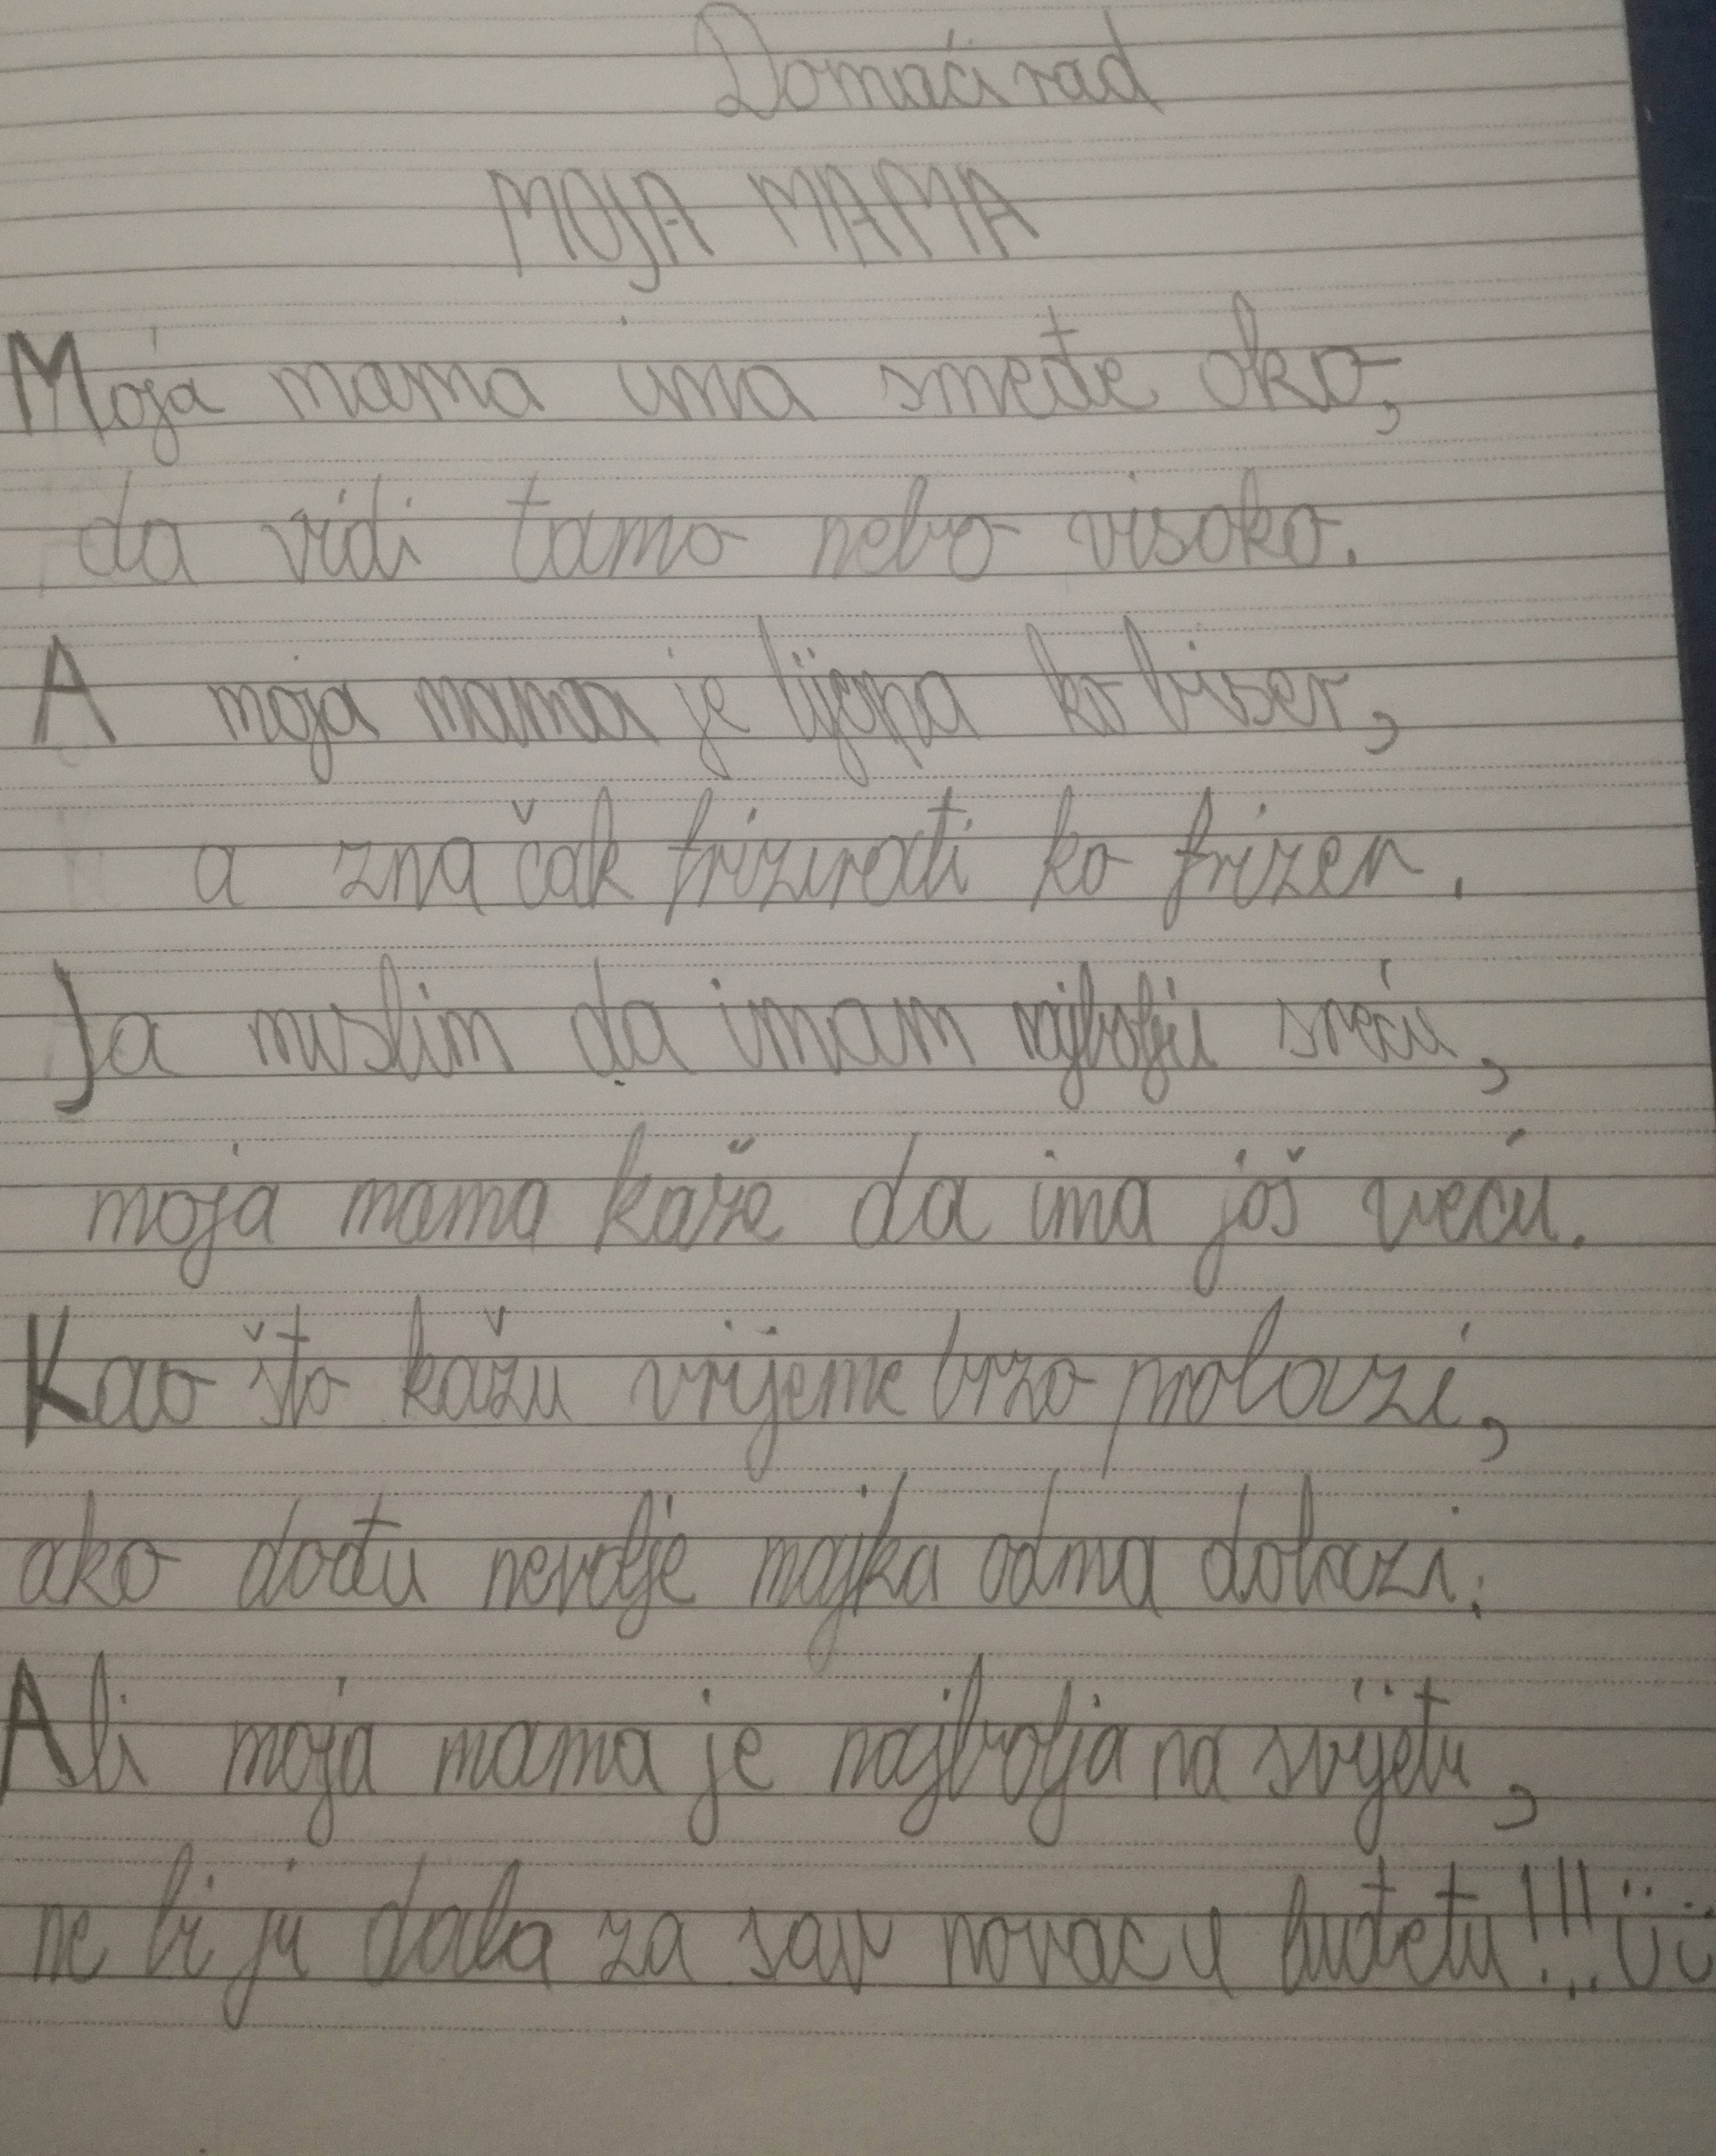 Domaći rad
MOJA MAMA
Moja mama ima smeđe oko,
da vidi tamo nebo visoko.
A moja mama je lijepa ko biser,
a zna čak frizirati ko frizer.
Ja mislim da imam najbolju sreću,
moja mama kaže da ima još veću.
Kao što kažu vrijeme brzo prolazi,
ako dođu nevolje majka odma dolazi.
Ali moja mama je najbolja na svijetu,
ne bi ju dala za sav novac u buđetu!!! :) :)